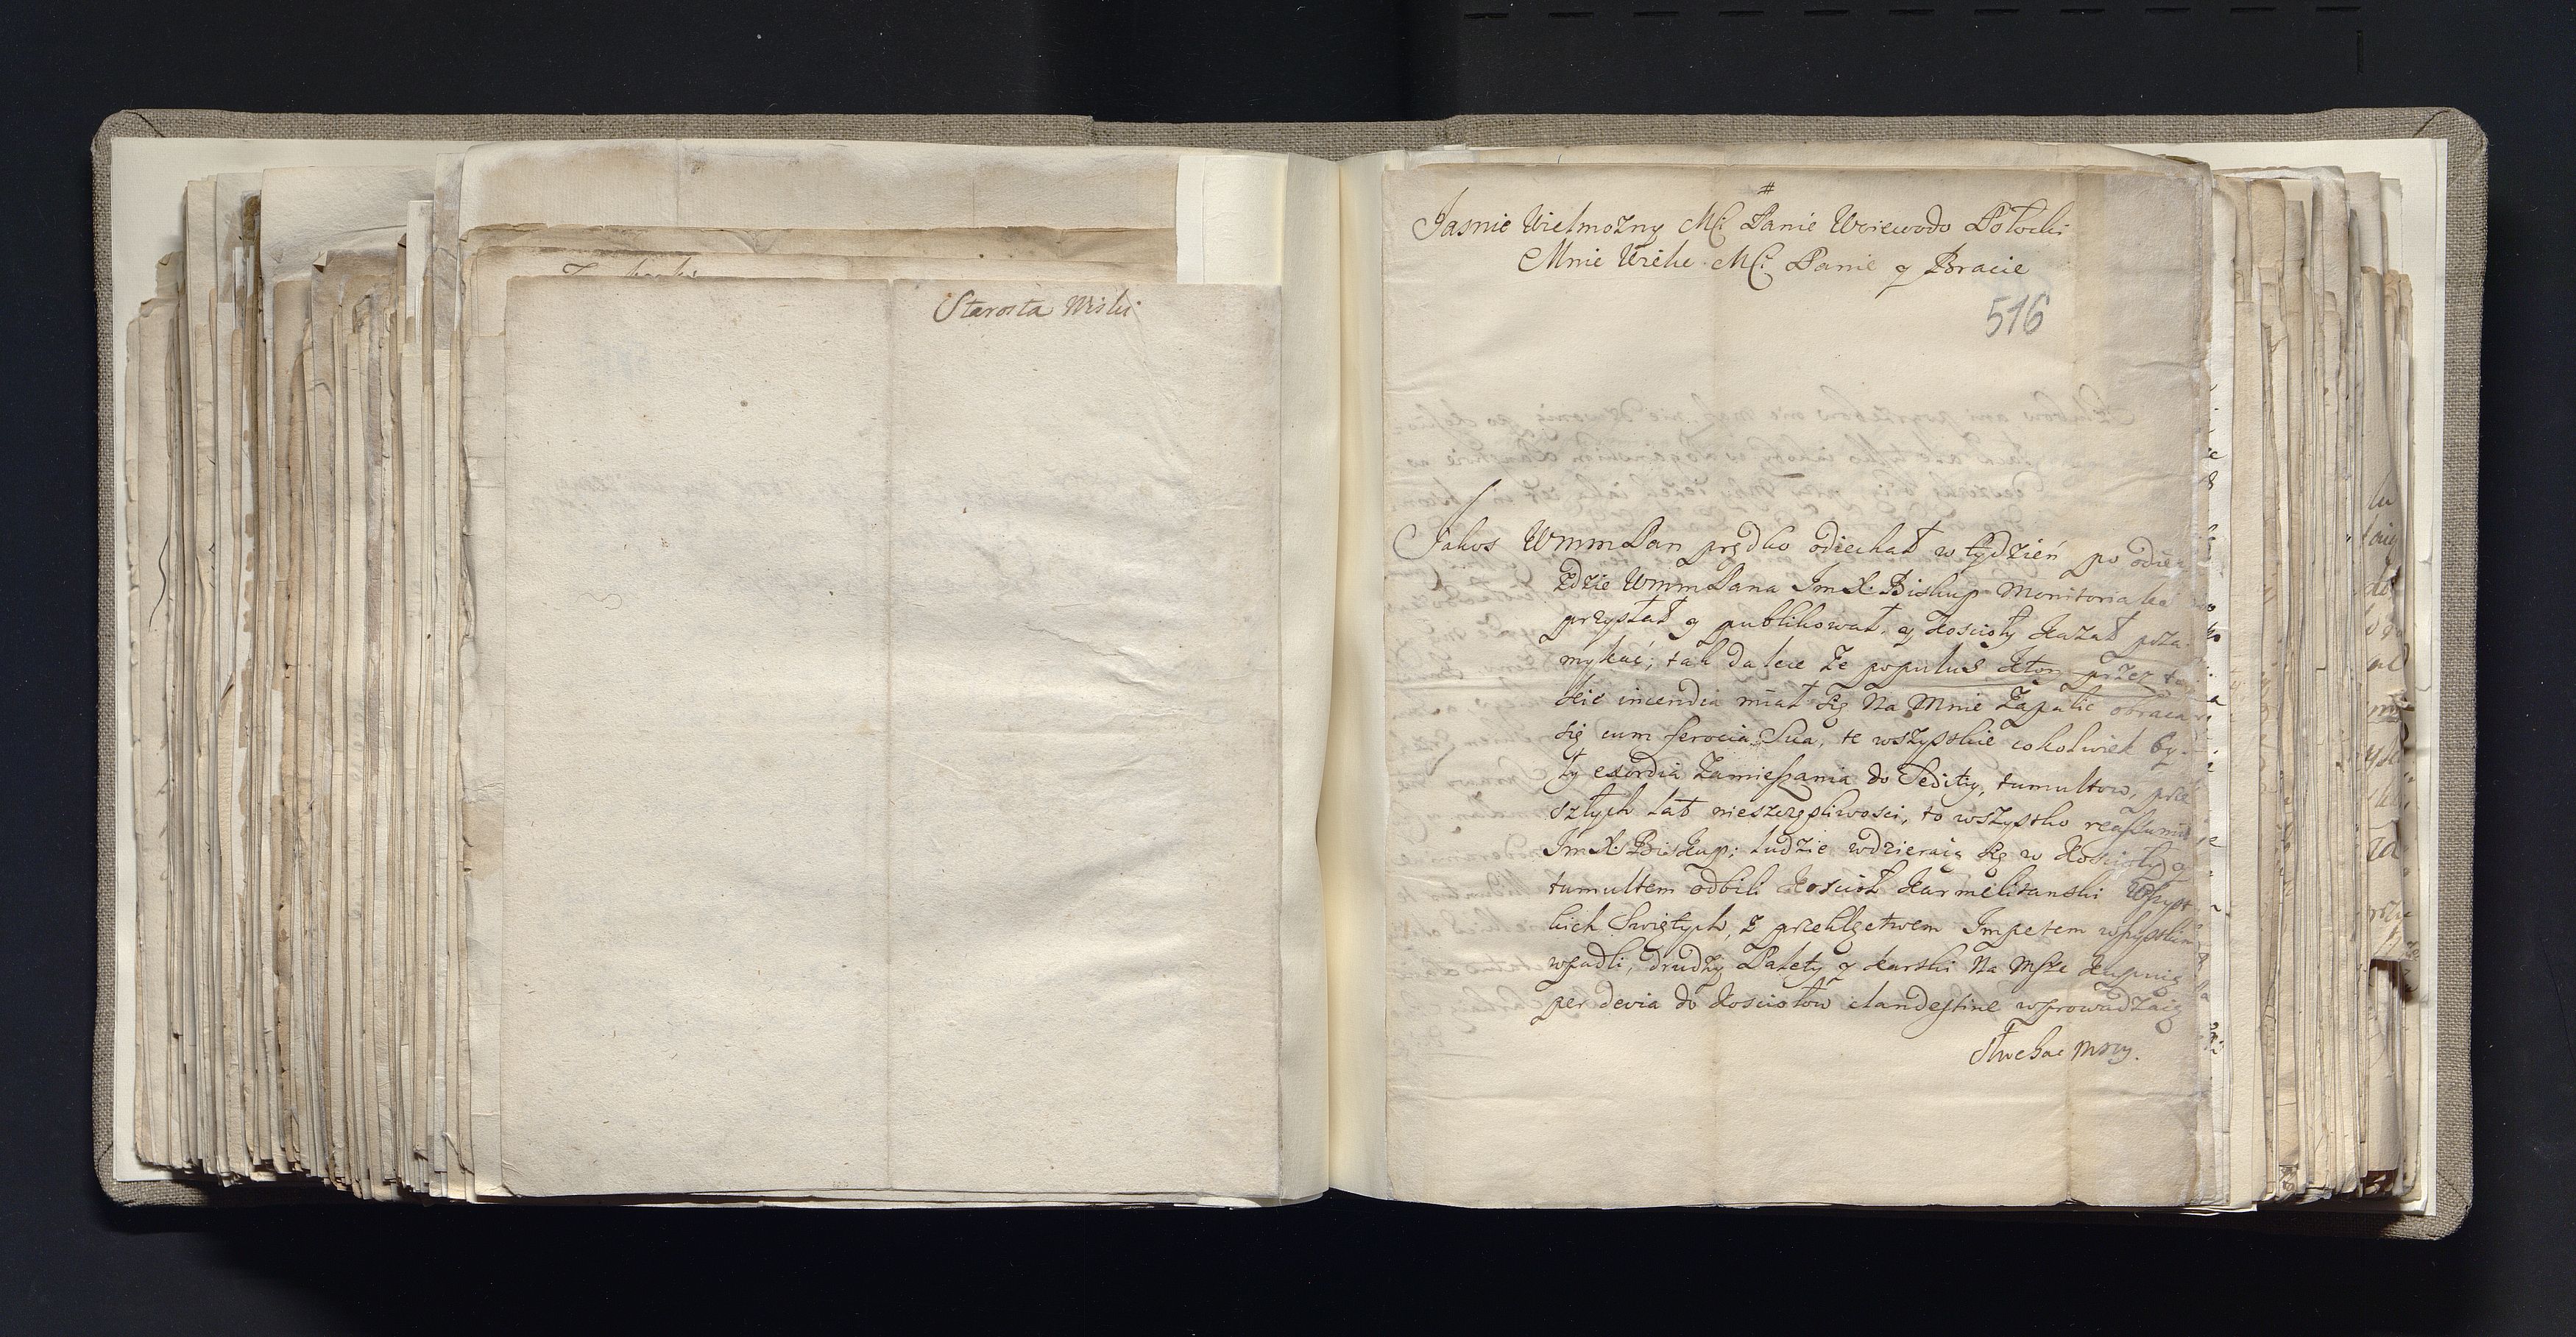 Starosta Miski
#
Jasnie Wielmozny Mci Panie Woiewodo Połocki
Mnie Wielce Mci Panie y Bracie
516
Jakos WmmPan prędko odiechał w tydzień po odieź
zdzie WmmPana Im X: Biskup Monitoriales
przysłał y publikował, y koscioły kazał poza-
mykać; tak dalece ze populus ktory przez ta
kie incendia miał się na Mnie Zapalić obraca
się cum ferocia Sua, te wszystkie cokolwiek by-
ły exordia Zamieszania do Seditiy, tumultow, prze
szłych lat nieszczęsliwosci, to wszystko reassumit
Im X: Biskup: ludzie wdzieraią się w koscioły y
tumultem odbili koscioł karmelitanski Wszyst
kich Swiętych, z przeklęctwem Impetem wszystkim
wpadli, drudzy Pakety y kartki na Msze kupuią
per devia do kosciołow clandestine wprowadzaią
Słuchac mszy.